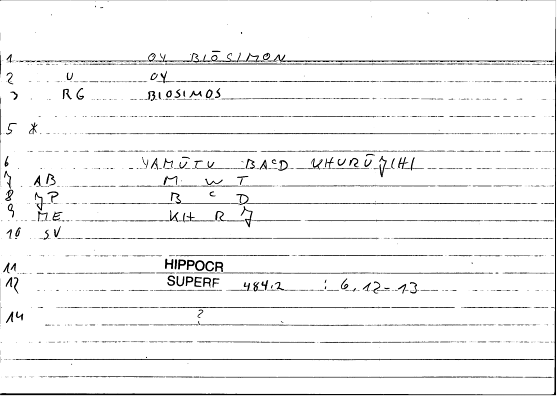 1 OY BIŌSIMON
2 U OY
3 RG BIOSIMOS
5 *
6 YAMŪTU BAcD KHURŪJIHI
7 AB M W T
8 JP B c D
9 ME KH R J
10 SV
11 HIPPOCR
12 SUPERF 484.2 : 6,12-13
14 ?